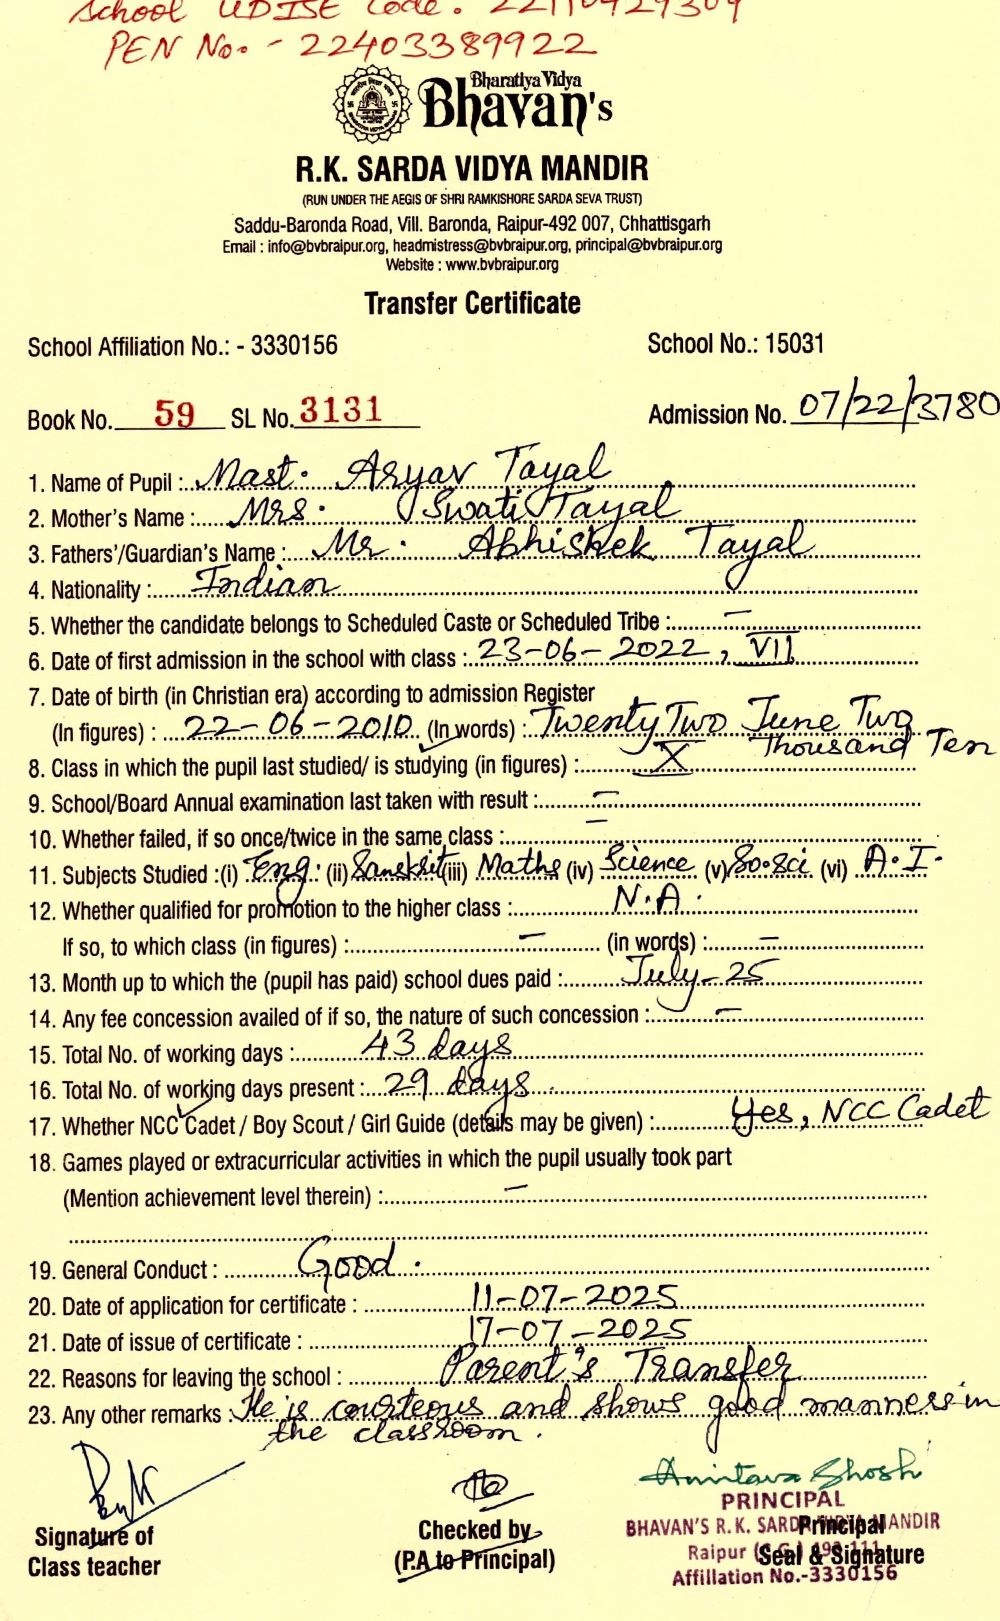 School UDISE Code. 22110429309
PEN No. - 22403389922
Bharatiya Vidya
Bhavan's
R.K. SARDA VIDYA MANDIR
(RUN UNDER THE AEGIS OF SHRI RAMKISHORE SARDA SEVA TRUST)
Saddu-Baronda Road, Vill. Baronda, Raipur-492 007, Chhattisgarh
Email : info@bvbraipur.org, headmistress@bvbraipur.org, principal@bvbraipur.org
Website : www.bvbraipur.org
Transfer Certificate
School Affiliation No.: - 3330156 School No.: 15031
Book No. 59 SL No. 3131 Admission No. 07/22/3780
1. Name of Pupil : Mast. Aryav Tayal
2. Mother's Name : Mrs. Swati Tayal
3. Fathers'/Guardian's Name : Mr. Abhishek Tayal
4. Nationality : Indian
5. Whether the candidate belongs to Scheduled Caste or Scheduled Tribe : —
6. Date of first admission in the school with class : 23-06-2022, VII
7. Date of birth (in Christian era) according to admission Register
(In figures) : 22-06-2010 (In words) : Twenty Two June Two
Thousand Ten
8. Class in which the pupil last studied/ is studying (in figures) : X
9. School/Board Annual examination last taken with result : —
10. Whether failed, if so once/twice in the same class : —
11. Subjects Studied :(i) Eng. (ii) Sanskrit (iii) Maths (iv) Science (v) So.Sci (vi) A.I.
12. Whether qualified for promotion to the higher class : N.A.
If so, to which class (in figures) : — (in words) : —
13. Month up to which the (pupil has paid) school dues paid : July-25
14. Any fee concession availed of if so, the nature of such concession : —
15. Total No. of working days : 43 days
16. Total No. of working days present : 29 days
17. Whether NCC Cadet / Boy Scout / Girl Guide (details may be given) : Yes, NCC Cadet
18. Games played or extracurricular activities in which the pupil usually took part
(Mention achievement level therein) : —
19. General Conduct : Good.
20. Date of application for certificate : 11-07-2025
21. Date of issue of certificate : 17-07-2025
22. Reasons for leaving the school : Parent's Transfer
23. Any other remarks : He is courteous and shows good manners in
the classroom.
Amitava Ghosh
PRINCIPAL
Signature of Checked by BHAVAN'S R.K. SARDA VIDYA MANDIR Principal
Class teacher (P.A to Principal) Raipur (C.G.) 493 111 Seal & Signature
Affiliation No.-3330156